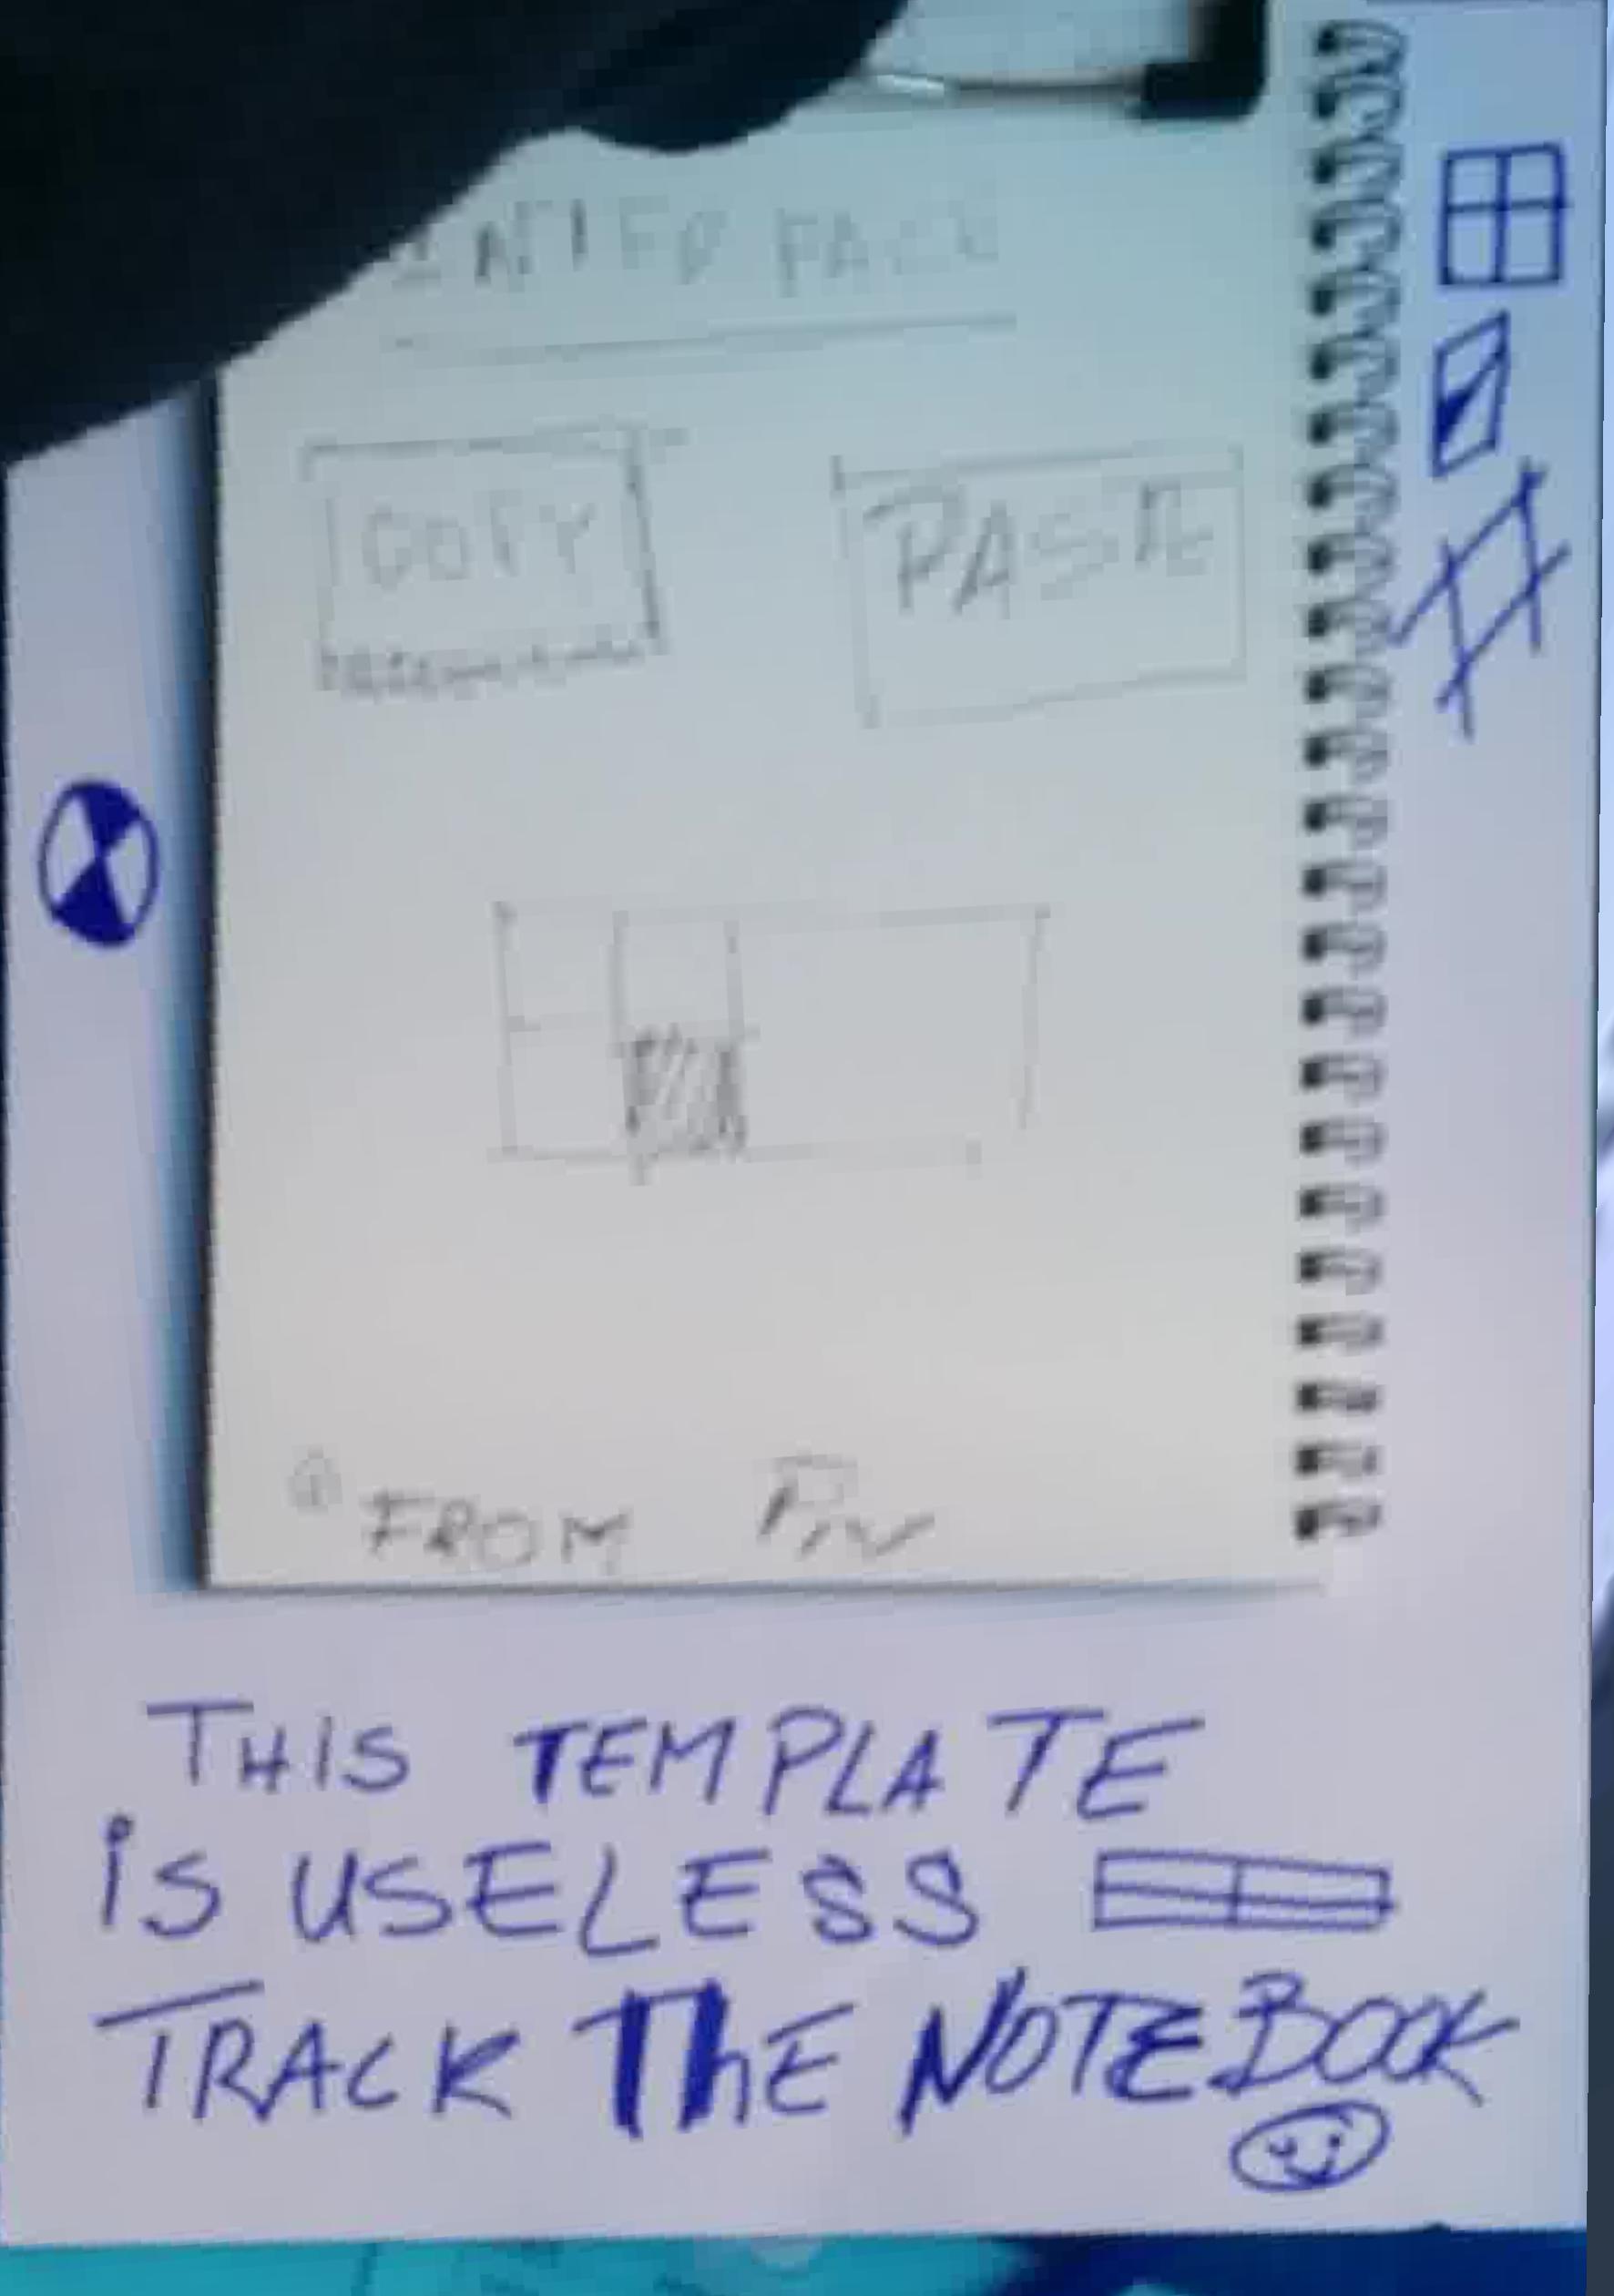 INTER FACE
COPY
PASTE
FROM
THIS TEMPLATE
iS USELESS
TRACK ThE NOTEBOOK